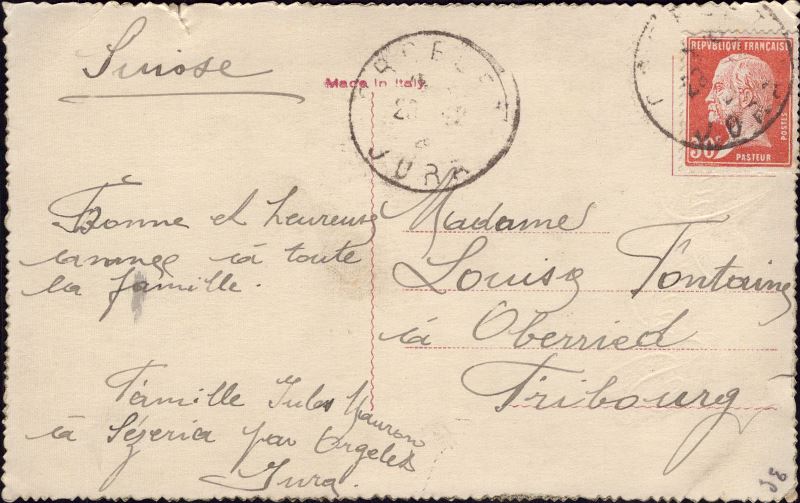 Suisse
Made in Italy
JURA
REPVBLIQUE FRANÇAISE
POSTES
PASTEUR
Bonne et heureuse
année à toute
la famille.
Famille Jules
à Sézeria par Orgelet
Jura
Madame
Louise Fontaine
à Oberried
Fribourg